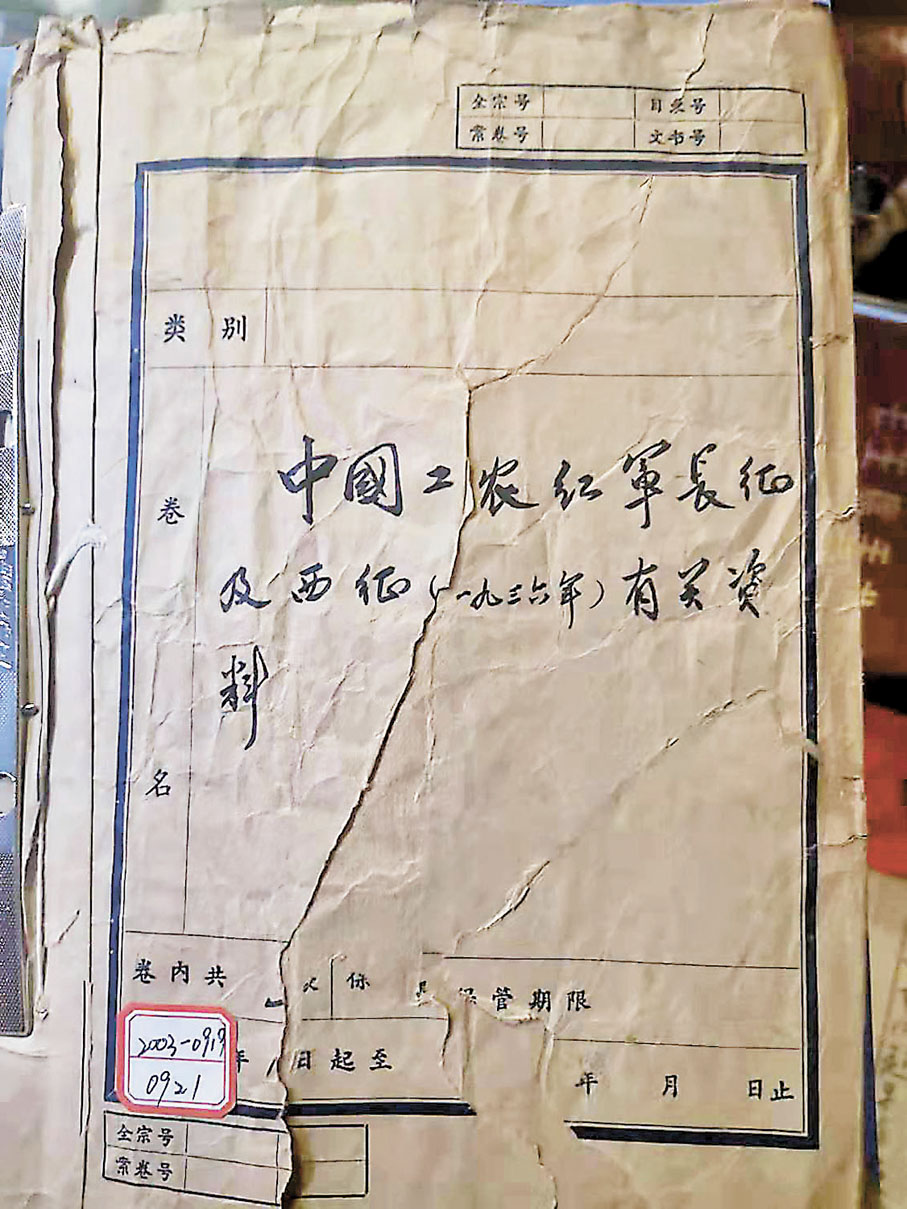 全宗号 目录号
案卷号 文书号
类别
卷名
中國工农红軍長征
及西征(一九三六年)有关资
料
卷内共 保管期限
年 日起至
年 月 日止
2003-0919
0921
全宗号
案卷号